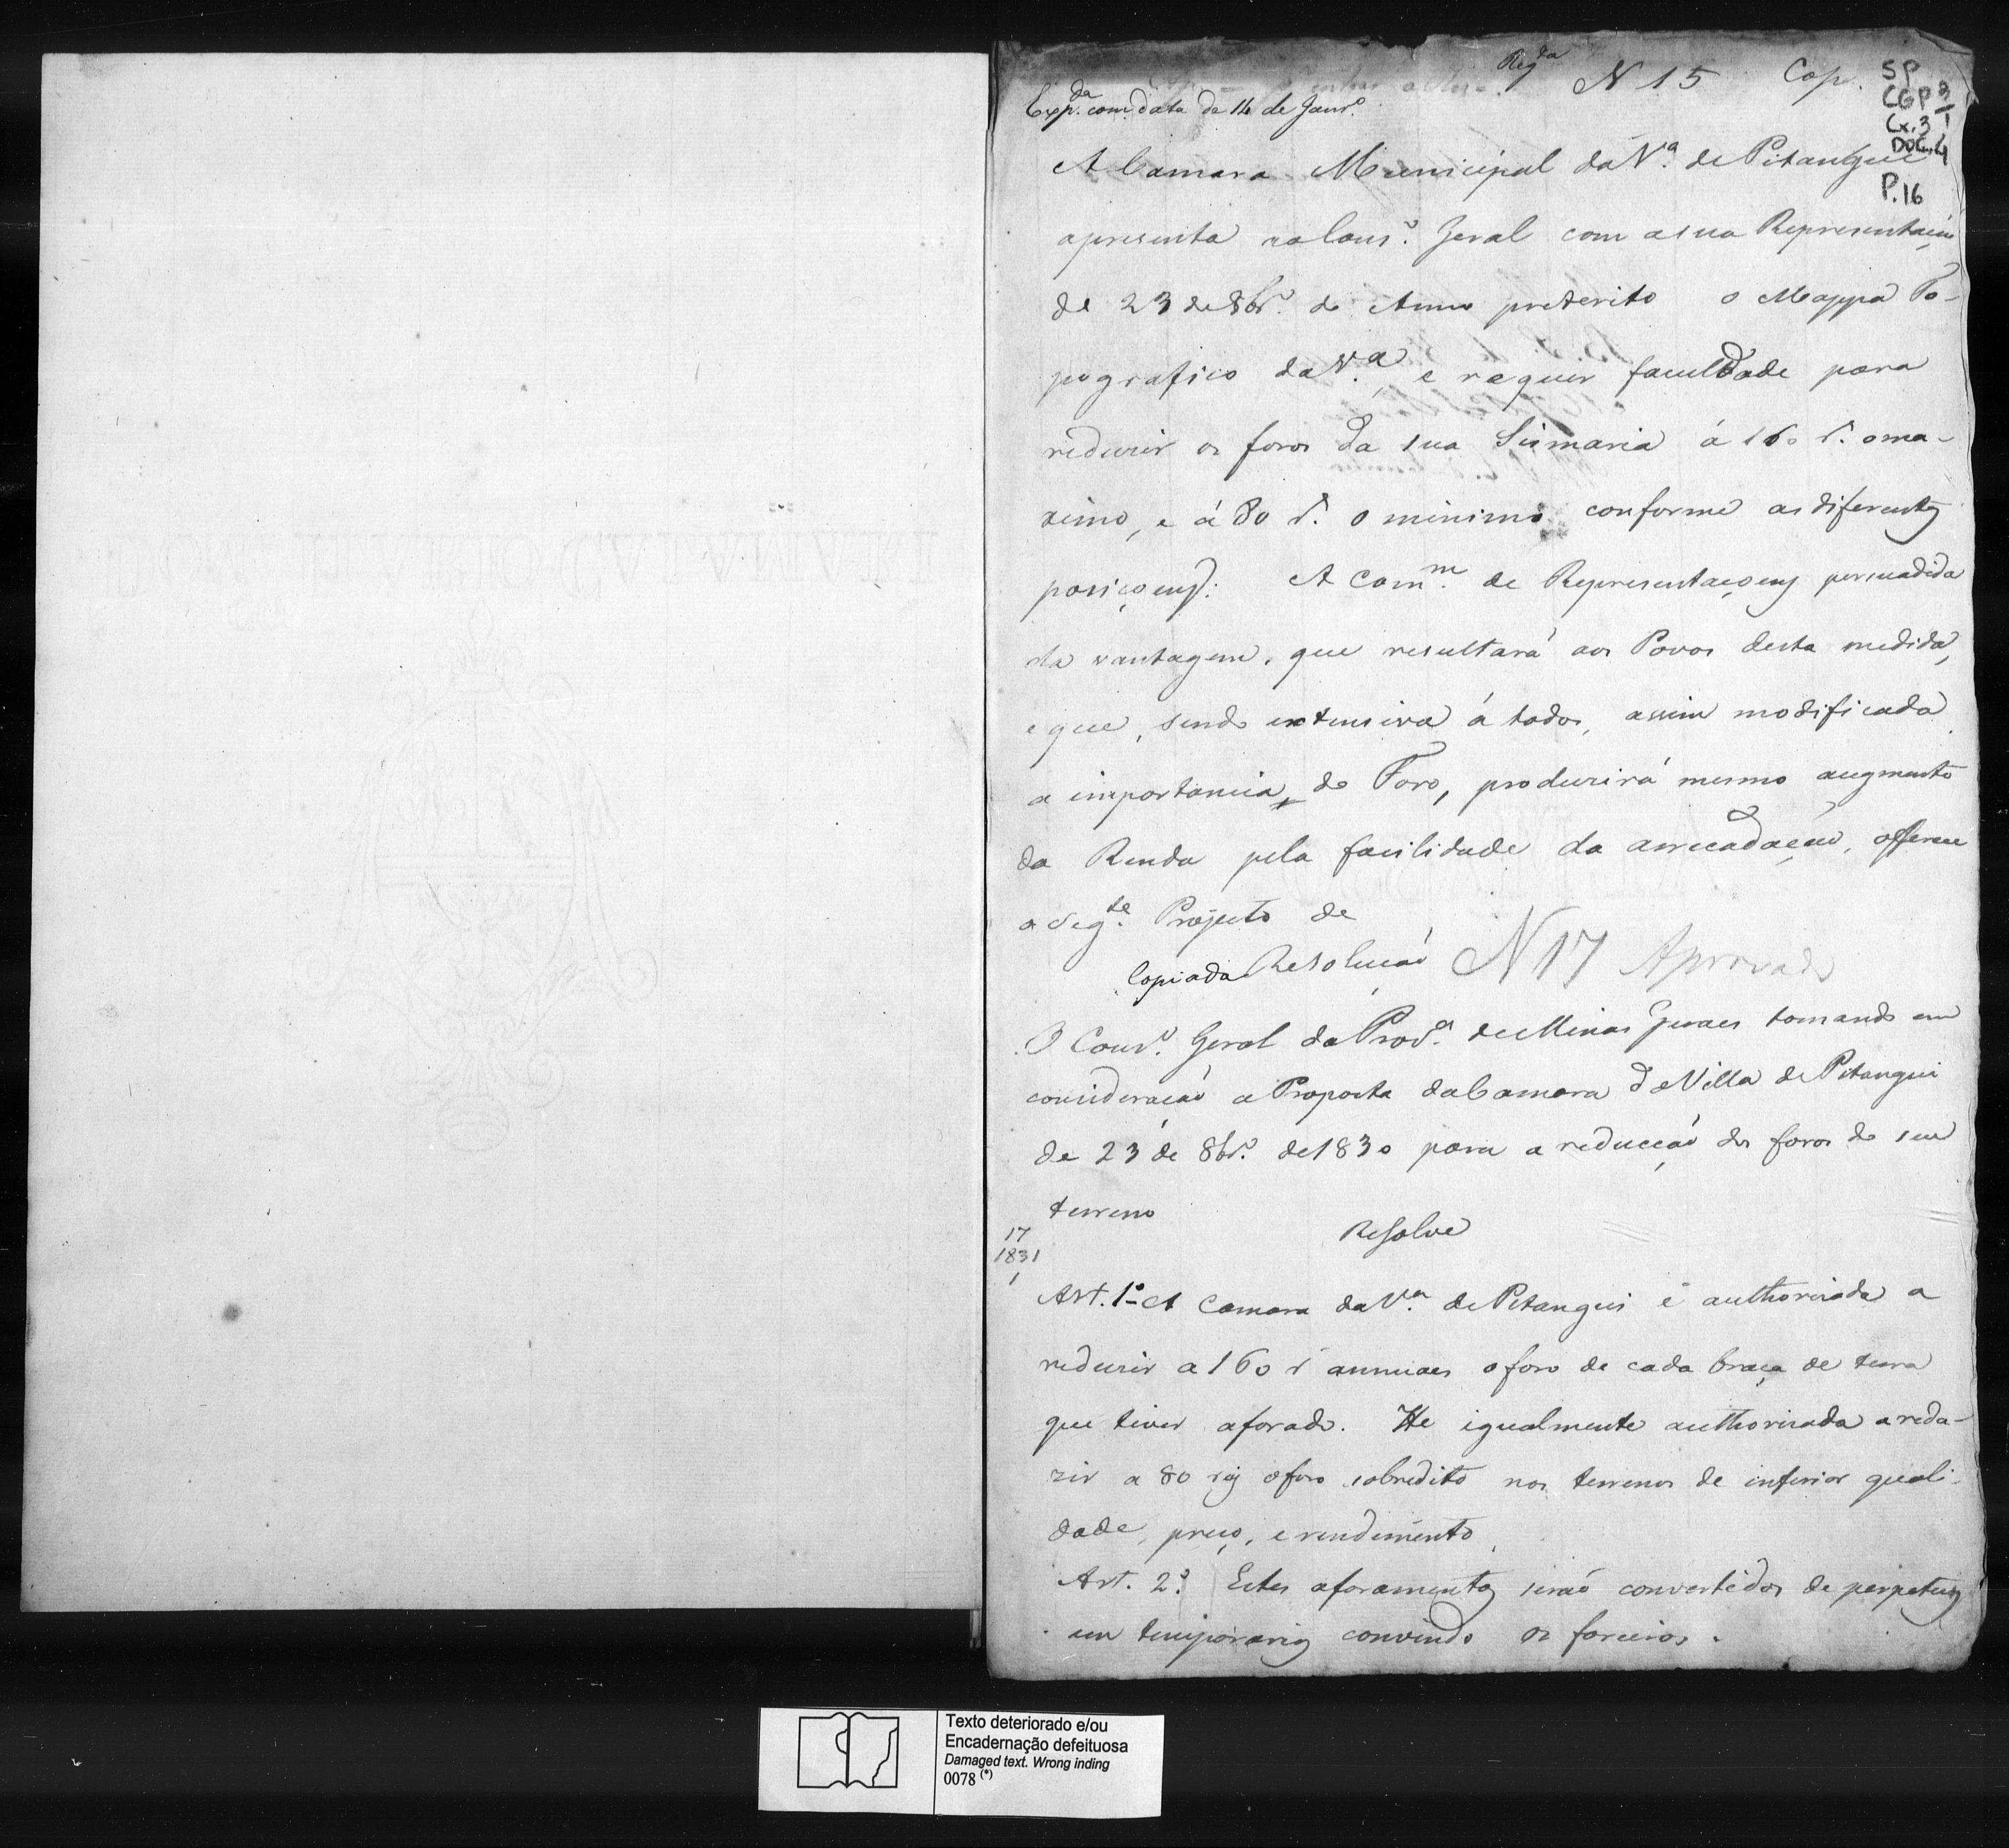 Regda N 15 Cop.
SP
CGP 3/1
Cx.3
DOC.4
P.16
Exp.da com data de 14 de Janro.
A Camara Municipal da Va. de Pitangui
apresenta ao Conso. Geral com a sua Representação
de 23 de 8bro. do Anno preterito o Mappa To-
pografico da Va. e requer faculdade para
reduzir os foros da sua Sismaria á 160 r. o ma-
ximo, e á 80 r. o minimo conforme as diferentes
posiçoens. A Comm. de Representaçoens persuadida
da vantagem, que resultará aos Povos desta medida,
e que, sendo extensiva á todos, assim modificada
a importancia do Foro, produzirá mesmo augmento
da Renda pela facilidade da arrecadação, offerece
o segte. Projecto de
Copiada Resolução N 17 Aprovado
O Conso. Geral da Prova. de Minas Geraes tomando em
consideração a Proposta da Camara da Villa de Pitangui
de 23 de 8bro. de 1830 para a reducção dos foros do seu
terreno
Resolve
17
1831
1
Art. 1º A Camara da Va. de Pitangui é authorisada a
reduzir a 160 r annuaes o foro de cada braça de terra
que tiver aforado. He igualmente authorisada a redu-
zir a 80 rs o foro sobredito nos terrenos de inferior quali-
dade, preço, e rendimento
Art. 2º Estes aforamentos serão convertidos de perpetuos
em temporarios convindo os foreiros.
Texto deteriorado e/ou
Encadernação defeituosa
Damaged text. Wrong inding
0078 (*)